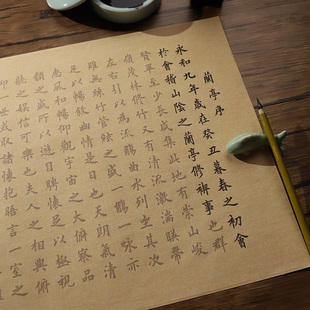 蘭亭序
永和九年歲在癸丑暮春之初會
於會稽山陰之蘭亭修禊事也群
賢畢至少長咸集此地有崇山峻
嶺茂林修竹又有清流激湍映帶
左右引以為流觴曲水列坐其次
雖無絲竹管絃之盛一觴一詠亦
足以暢敘幽情是日也天朗氣清
惠風和暢仰觀宇宙之大俯察品
類之盛所以遊目騁懷足以極視
聽之娛信可樂也夫人之相與俯
仰一世或取諸懷抱晤言一室之